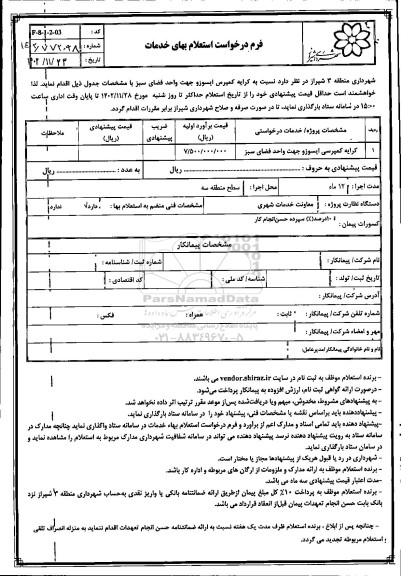 فرم درخواست استعلام بهای خدمات
کد : F-8-1-2-03
شماره :
تاریخ : ۱۴۰۲/۱۱/۲۳
شهرداری منطقه ۳ شیراز در نظر دارد نسبت به کرایه کمپرسی ایسوزو جهت واحد فضای سبز با مشخصات جدول ذیل اقدام نماید. لذا
خواهشمند است حداقل قیمت پیشنهادی خود را از تاریخ استعلام حداکثر تا روز شنبه مورخ ۱۴۰۲/۱۱/۲۸ تا پایان وقت اداری ساعت
۱۵:۰۰ در سامانه ستاد بارگذاری نمایند، تا در صورت صرفه و صلاح شهرداری شیراز برابر مقررات اقدام گردد.
ردیف مشخصات پروژه/ خدمات درخواستی قیمت برآورد اولیه (ریال) ضریب پیشنهادی قیمت پیشنهادی (ریال) ملاحظات
۱ کرایه کمپرسی ایسوزو جهت واحد فضای سبز ۷/۵۰۰/۰۰۰/۰۰۰
قیمت پیشنهادی به حروف : ریال به عدد : ریال
مدت اجرا : ۱۲ ماه محل اجرا : سطح منطقه سه
دستگاه نظارت پروژه : معاونت خدمات شهری مشخصات فنی منضم به استعلام بها : دارد√ ندارد
کسورات پیمان : ۱۰ درصد(٪) سپرده حسن انجام کار
مشخصات پیمانکار
نام شرکت/ پیمانکار : شماره ثبت/ شناسنامه :
تاریخ ثبت/ تولد : شناسه/ کد ملی : کد اقتصادی :
آدرس شرکت/ پیمانکار :
شماره تلفن شرکت/ پیمانکار : ثابت : همراه : فکس :
مهر و امضاء شرکت/ پیمانکار :
نام و نام خانوادگی پیمانکار/مدیرعامل:
ParsNamadData
۰۲۱-۸۸۳۴۹۶۷۰-۵
- برنده استعلام موظف به ثبت نام در سایت vendor.shiraz.ir می باشند.
- درصورت ارائه گواهی ثبت نام، ارزش افزوده به پیمانکار پرداخت می‌شود.
- به پیشنهادهای مشروط، مخدوش، مبهم ویا دریافت‌شده پس‌از موعد مقرر ترتیب اثر داده نخواهد شد.
- پیشنهاددهنده باید براساس نقشه یا مشخصات فنی، پیشنهاد خود را در سامانه ستاد بارگذاری نماید.
- پیشنهاد دهنده باید تمامی اسناد و مدارک اعم از برآورد و فرم درخواست استعلام بهاء خدمات در سامانه ستاد واگذاری نماید چنانچه مدارک در
سامانه ستاد به رویت پیشنهاد دهنده نرسد پیشنهاد دهنده می تواند در سامانه شفافیت شهرداری مدارک مربوط به استعلام را مشاهده نماید و
در سامان ستاد بارگذاری نماید.
- شهرداری در رد یا قبول هریک از پیشنهادها مجاز یا مختار است.
- برنده استعلام موظف به ارائه مدارک و ملزومات از ارگان های مربوطه و اداره کار باشد.
- مدت اعتبار قیمت پیشنهادی سه ماه می باشد.
- برنده استعلام موظف به پرداخت ۱۰٪ کل مبلغ پیمان ازطریق ارائه ضمانتنامه بانکی یا واریز نقدی به‌حساب شهرداری منطقه ۳ شیراز نزد
بانک بابت حسن انجام تعهدات پیمان قبل‌از انعقاد قرارداد می‌باشد.
- چنانچه پس از ابلاغ ، برنده استعلام ظرف مدت یک هفته نسبت به ارائه ضمانتنامه حسن انجام تعهدات اقدام ننماید به منزله انصراف تلقی
و استعلام مربوطه تجدید می گردد.